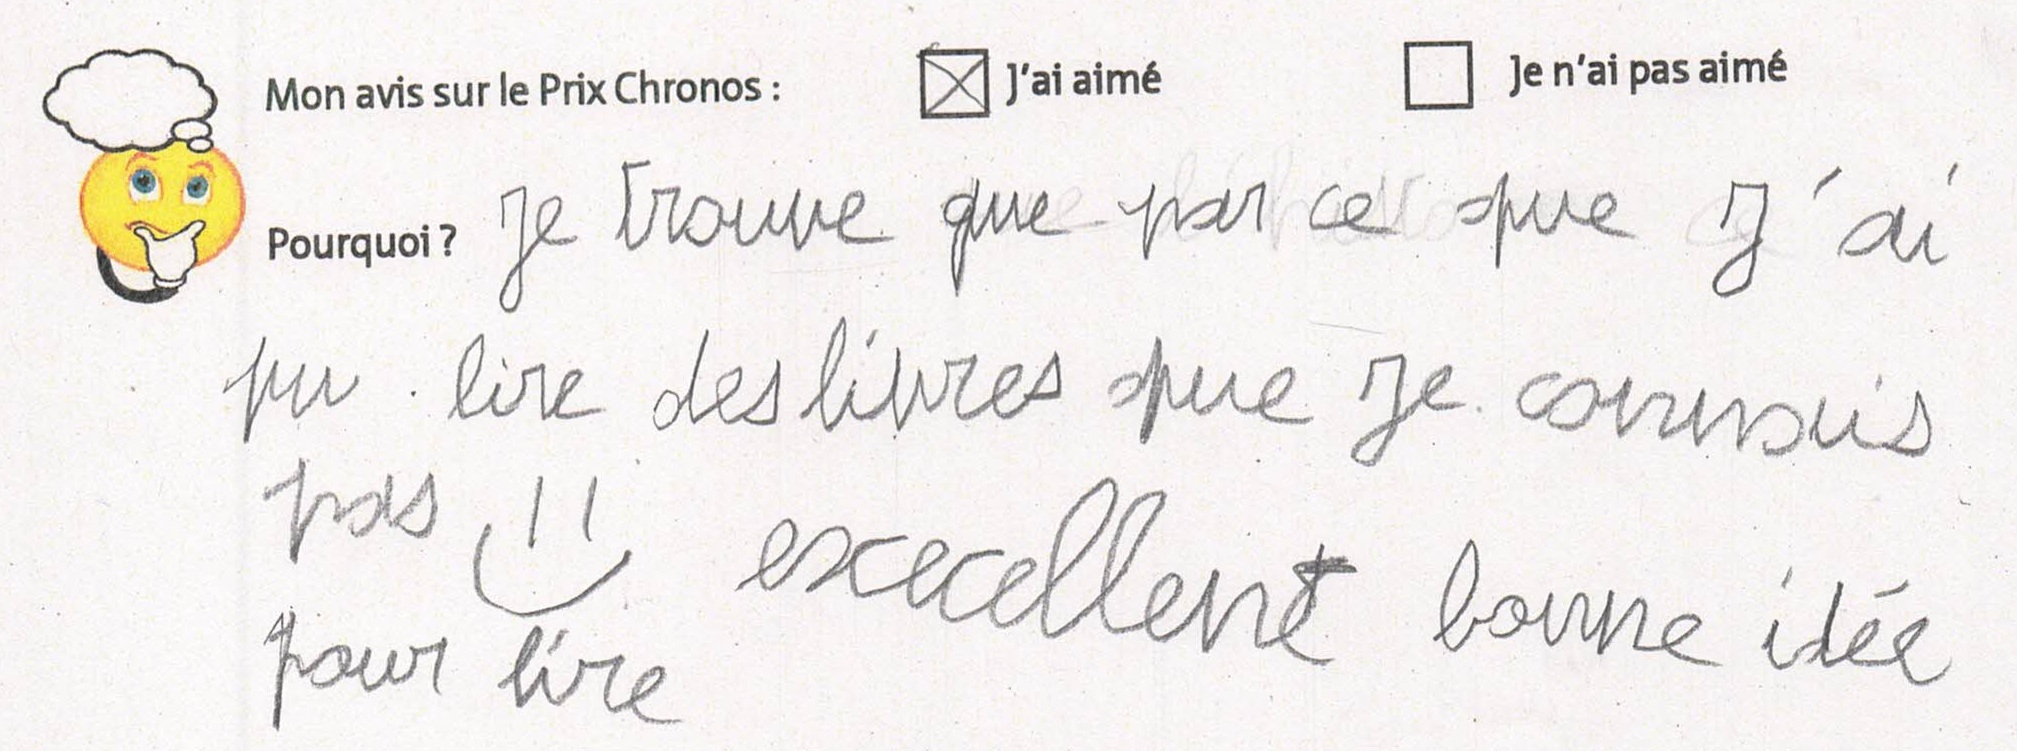 Mon avis sur le Prix Chronos : ☒ J'ai aimé ☐ Je n'ai pas aimé
Pourquoi ? je trouve que par ce que j'ai
pu lire des livres que je connais
pas excecellent bonne idée
pour lire